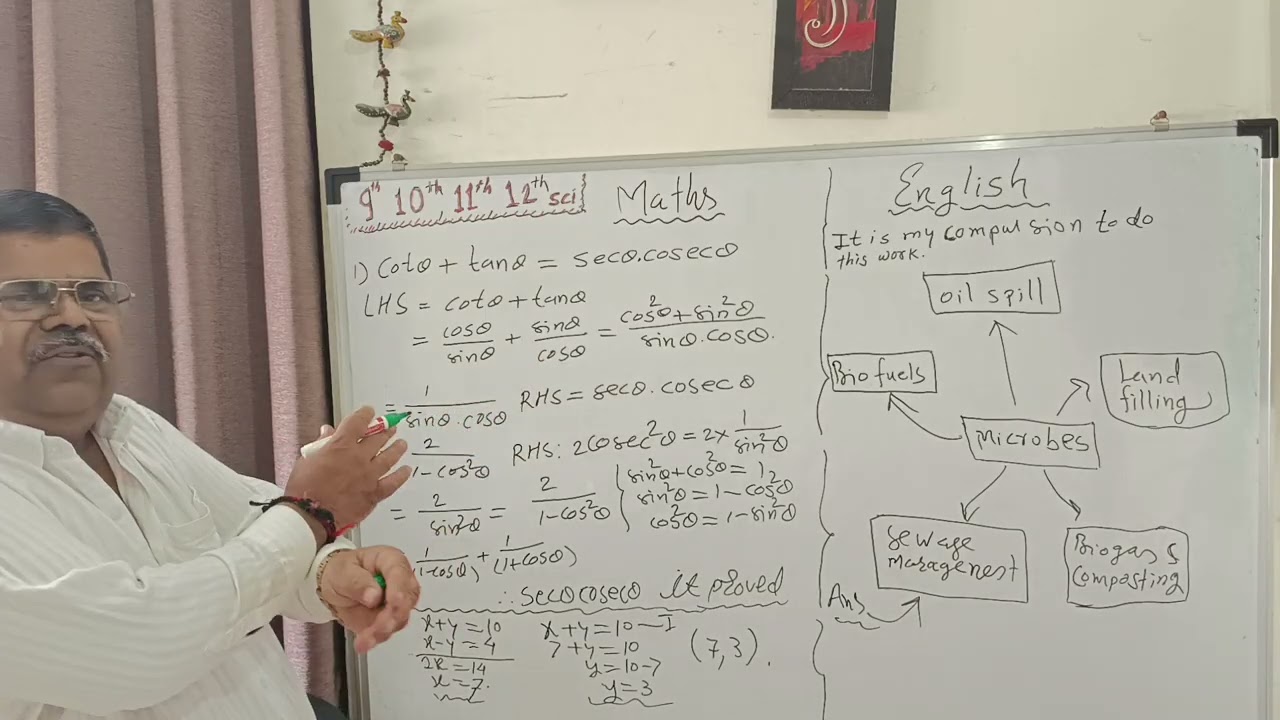 9th 10th 11th 12th sci
Maths
1) cotθ + tanθ = secθ.cosecθ
LHS = cotθ + tanθ
= cosθ/sinθ + sinθ/cosθ = cos²θ + sin²θ/sinθ.cosθ.
= 1/sinθ.cosθ RHS = secθ.cosecθ
2/1-cos²θ RHS: 2cosec²θ = 2× 1/sin²θ
= 2/sin²θ = 2/1-cos²θ
sin²θ + cos²θ = 1
sin²θ = 1 - cos²θ
cos²θ = 1 - sin²θ
1/(1-cosθ) + 1/(1+cosθ)
∴ secθcosecθ it proved
x+y=10
x-y=4
2x=14
x=7.
x+y=10-I
7+y=10
y=10-7
y=3
(7,3).
English
It is my compulsion to do
this work.
oil spill
Biofuels
Land
filling
Microbes
Sewage
management
Biogas &
Composting
Ans